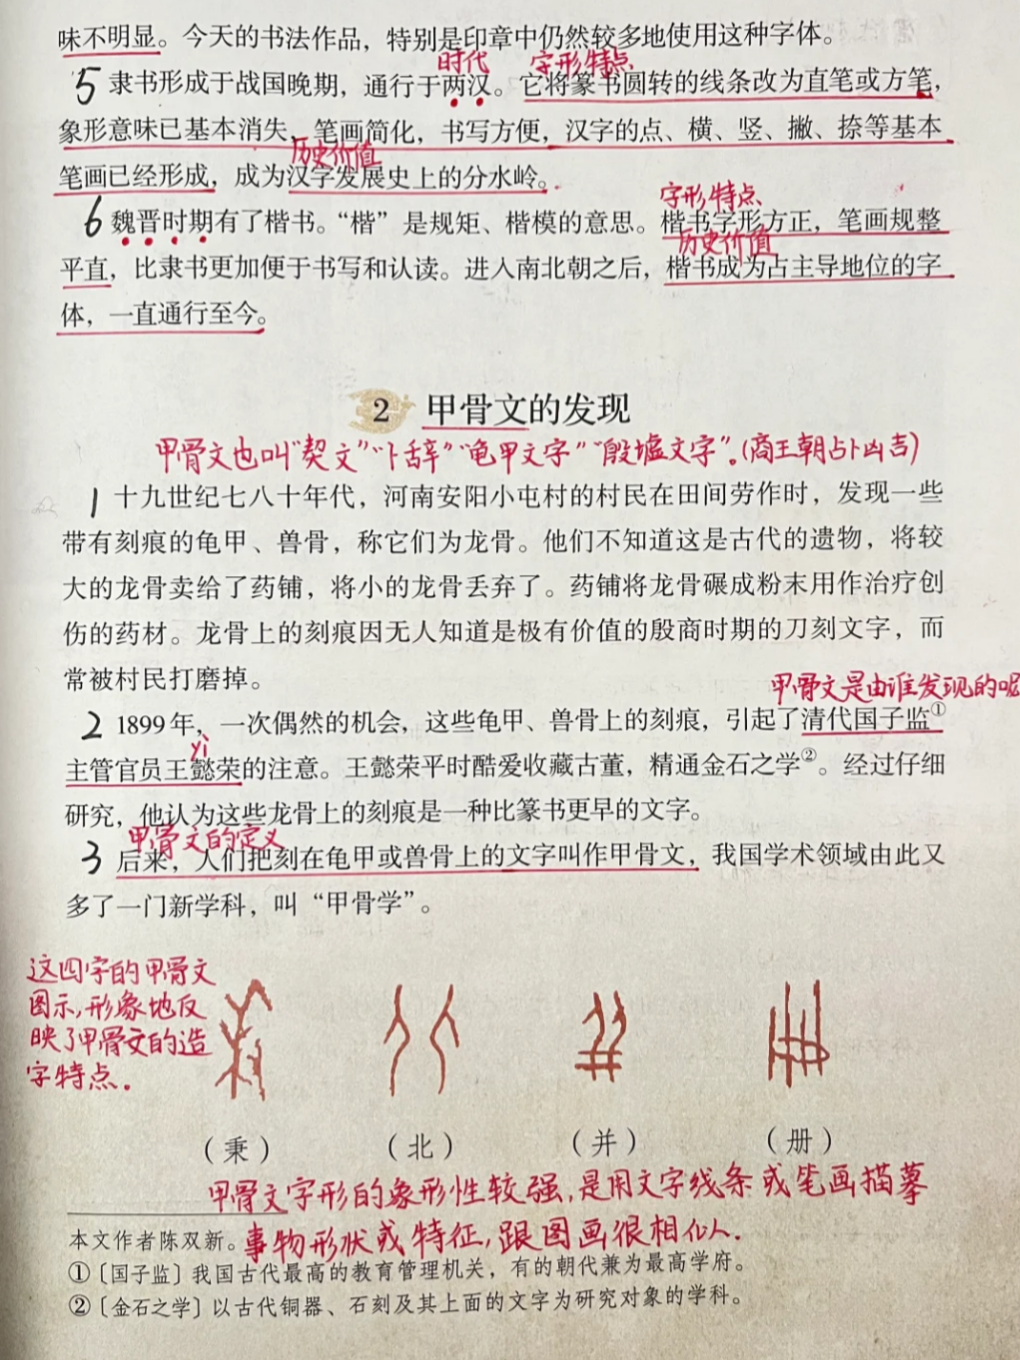 味不明显。今天的书法作品，特别是印章中仍然较多地使用这种字体。
时代 字形特点
5 隶书形成于战国晚期，通行于两汉。它将篆书圆转的线条改为直笔或方笔，
象形意味已基本消失，笔画简化，书写方便，汉字的点、横、竖、撇、捺等基本
历史价值
笔画已经形成，成为汉字发展史上的分水岭。
字形特点
6 魏晋时期有了楷书。“楷”是规矩、楷模的意思。楷书字形方正，笔画规整
历史价值
平直，比隶书更加便于书写和认读。进入南北朝之后，楷书成为占主导地位的字
体，一直通行至今。
2 甲骨文的发现
甲骨文也叫“契文”“卜辞”“龟甲文字”“殷墟文字”。(商王朝占卜凶吉)
1 十九世纪七八十年代，河南安阳小屯村的村民在田间劳作时，发现一些
带有刻痕的龟甲、兽骨，称它们为龙骨。他们不知道这是古代的遗物，将较
大的龙骨卖给了药铺，将小的龙骨丢弃了。药铺将龙骨碾成粉末用作治疗创
伤的药材。龙骨上的刻痕因无人知道是极有价值的殷商时期的刀刻文字，而
常被村民打磨掉。
甲骨文是由谁发现的呢
2 1899年，一次偶然的机会，这些龟甲、兽骨上的刻痕，引起了清代国子监①
yì
主管官员王懿荣的注意。王懿荣平时酷爱收藏古董，精通金石之学②。经过仔细
研究，他认为这些龙骨上的刻痕是一种比篆书更早的文字。
甲骨文的定义
3 后来，人们把刻在龟甲或兽骨上的文字叫作甲骨文，我国学术领域由此又
多了一门新学科，叫“甲骨学”。
这四字的甲骨文
图示，形象地反
映了甲骨文的造
字特点.
（秉） （北） （并） （册）
甲骨文字形的象形性较强，是用文字线条或笔画描摹
事物形状或特征，跟图画很相似.
本文作者陈双新。
①〔国子监〕我国古代最高的教育管理机关，有的朝代兼为最高学府。
②〔金石之学〕以古代铜器、石刻及其上面的文字为研究对象的学科。